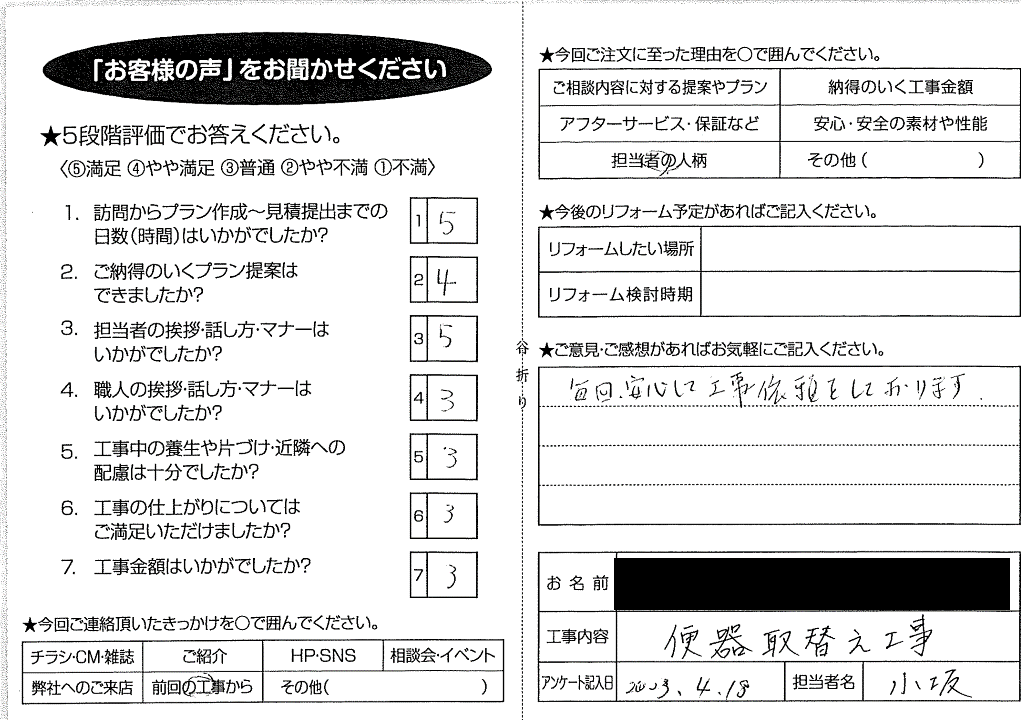 「お客様の声」をお聞かせください
★5段階評価でお答えください。
〈⑤満足 ④やや満足 ③普通 ②やや不満 ①不満〉
1. 訪問からプラン作成～見積提出までの
日数(時間)はいかがでしたか?
1 5
2. ご納得のいくプラン提案は
できましたか?
2 4
3. 担当者の挨拶・話し方・マナーは
いかがでしたか?
3 5
4. 職人の挨拶・話し方・マナーは
いかがでしたか?
4 3
5. 工事中の養生や片づけ・近隣への
配慮は十分でしたか?
5 3
6. 工事の仕上がりについては
ご満足いただけましたか?
6 3
7. 工事金額はいかがでしたか?
7 3
★今回ご連絡頂いたきっかけを○で囲んでください。
チラシ・CM・雑誌 ご紹介 HP・SNS 相談会・イベント
弊社へのご来店 前回の工事から その他( )
谷折り
★今回ご注文に至った理由を○で囲んでください。
ご相談内容に対する提案やプラン 納得のいく工事金額
アフターサービス・保証など 安心・安全の素材や性能
担当者の人柄 その他( )
★今後のリフォーム予定があればご記入ください。
リフォームしたい場所
リフォーム検討時期
★ご意見・ご感想があればお気軽にご記入ください。
毎回、安心して工事依頼をしております.
お名前
工事内容 便器取替え工事
アンケート記入日 2023.4.18 担当者名 小坂